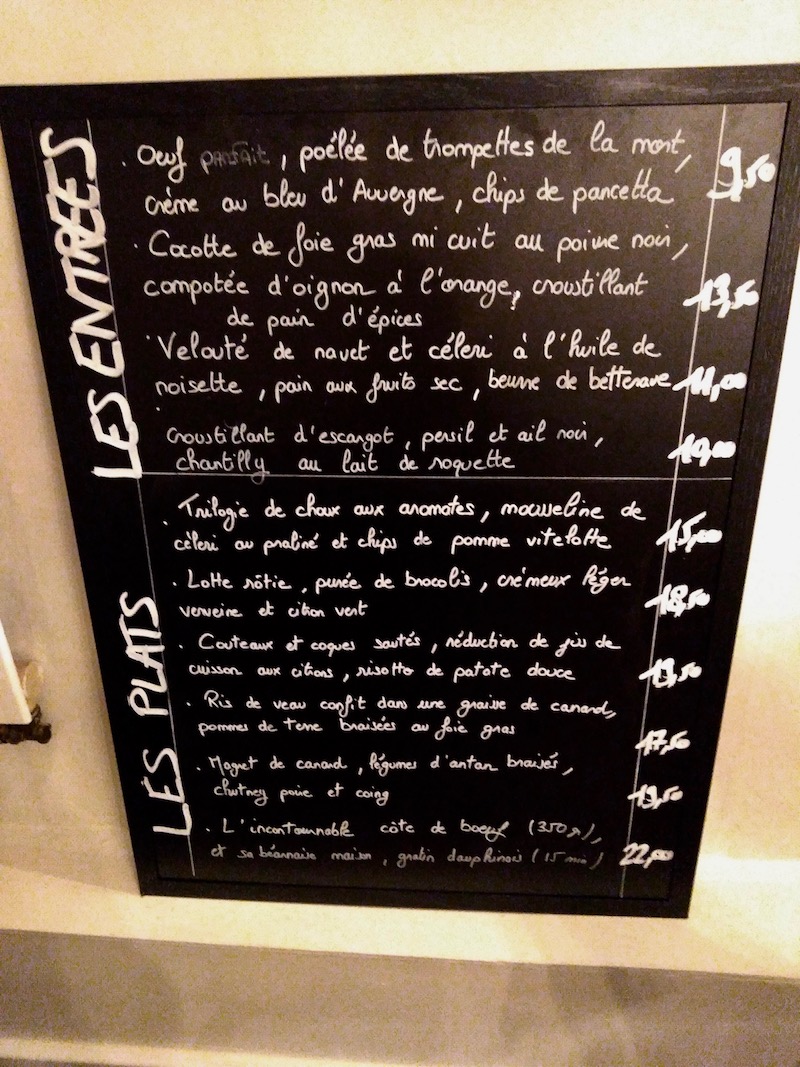 LES ENTRÉES
. Oeuf parfait, poêlée de trompettes de la mort, 9,50
crème au bleu d'Auvergne, chips de pancetta
. Cocotte de foie gras mi cuit au poivre noir,
compotée d'oignon à l'orange, croustillant 13,50
de pain d'épices
. Velouté de navet et céleri à l'huile de
noisette, pain aux fruits sec, beurre de betterave 11,00
. Croustillant d'escargot, persil et ail noir,
chantilly au lait de roquette
LES PLATS
. Trilogie de choux aux aromates, mousseline de
céleri au praliné et chips de pomme vitelotte 15,00
. Lotte rôtie, purée de brocolis, crémeux léger
verveine et citron vert 18,50
. Couteaux et coques sautés, réduction de jus de
cuisson aux citrons, risotto de patate douce 19,50
. Ris de veau confit dans une graisse de canard,
pommes de terre braisées au foie gras 17,50
. Magret de canard, légumes d'antan braisés,
chutney poire et coing 19,50
. L'incontournable côte de boeuf (350gr),
et sa béarnaise maison, gratin dauphinois (15 min) 22,00